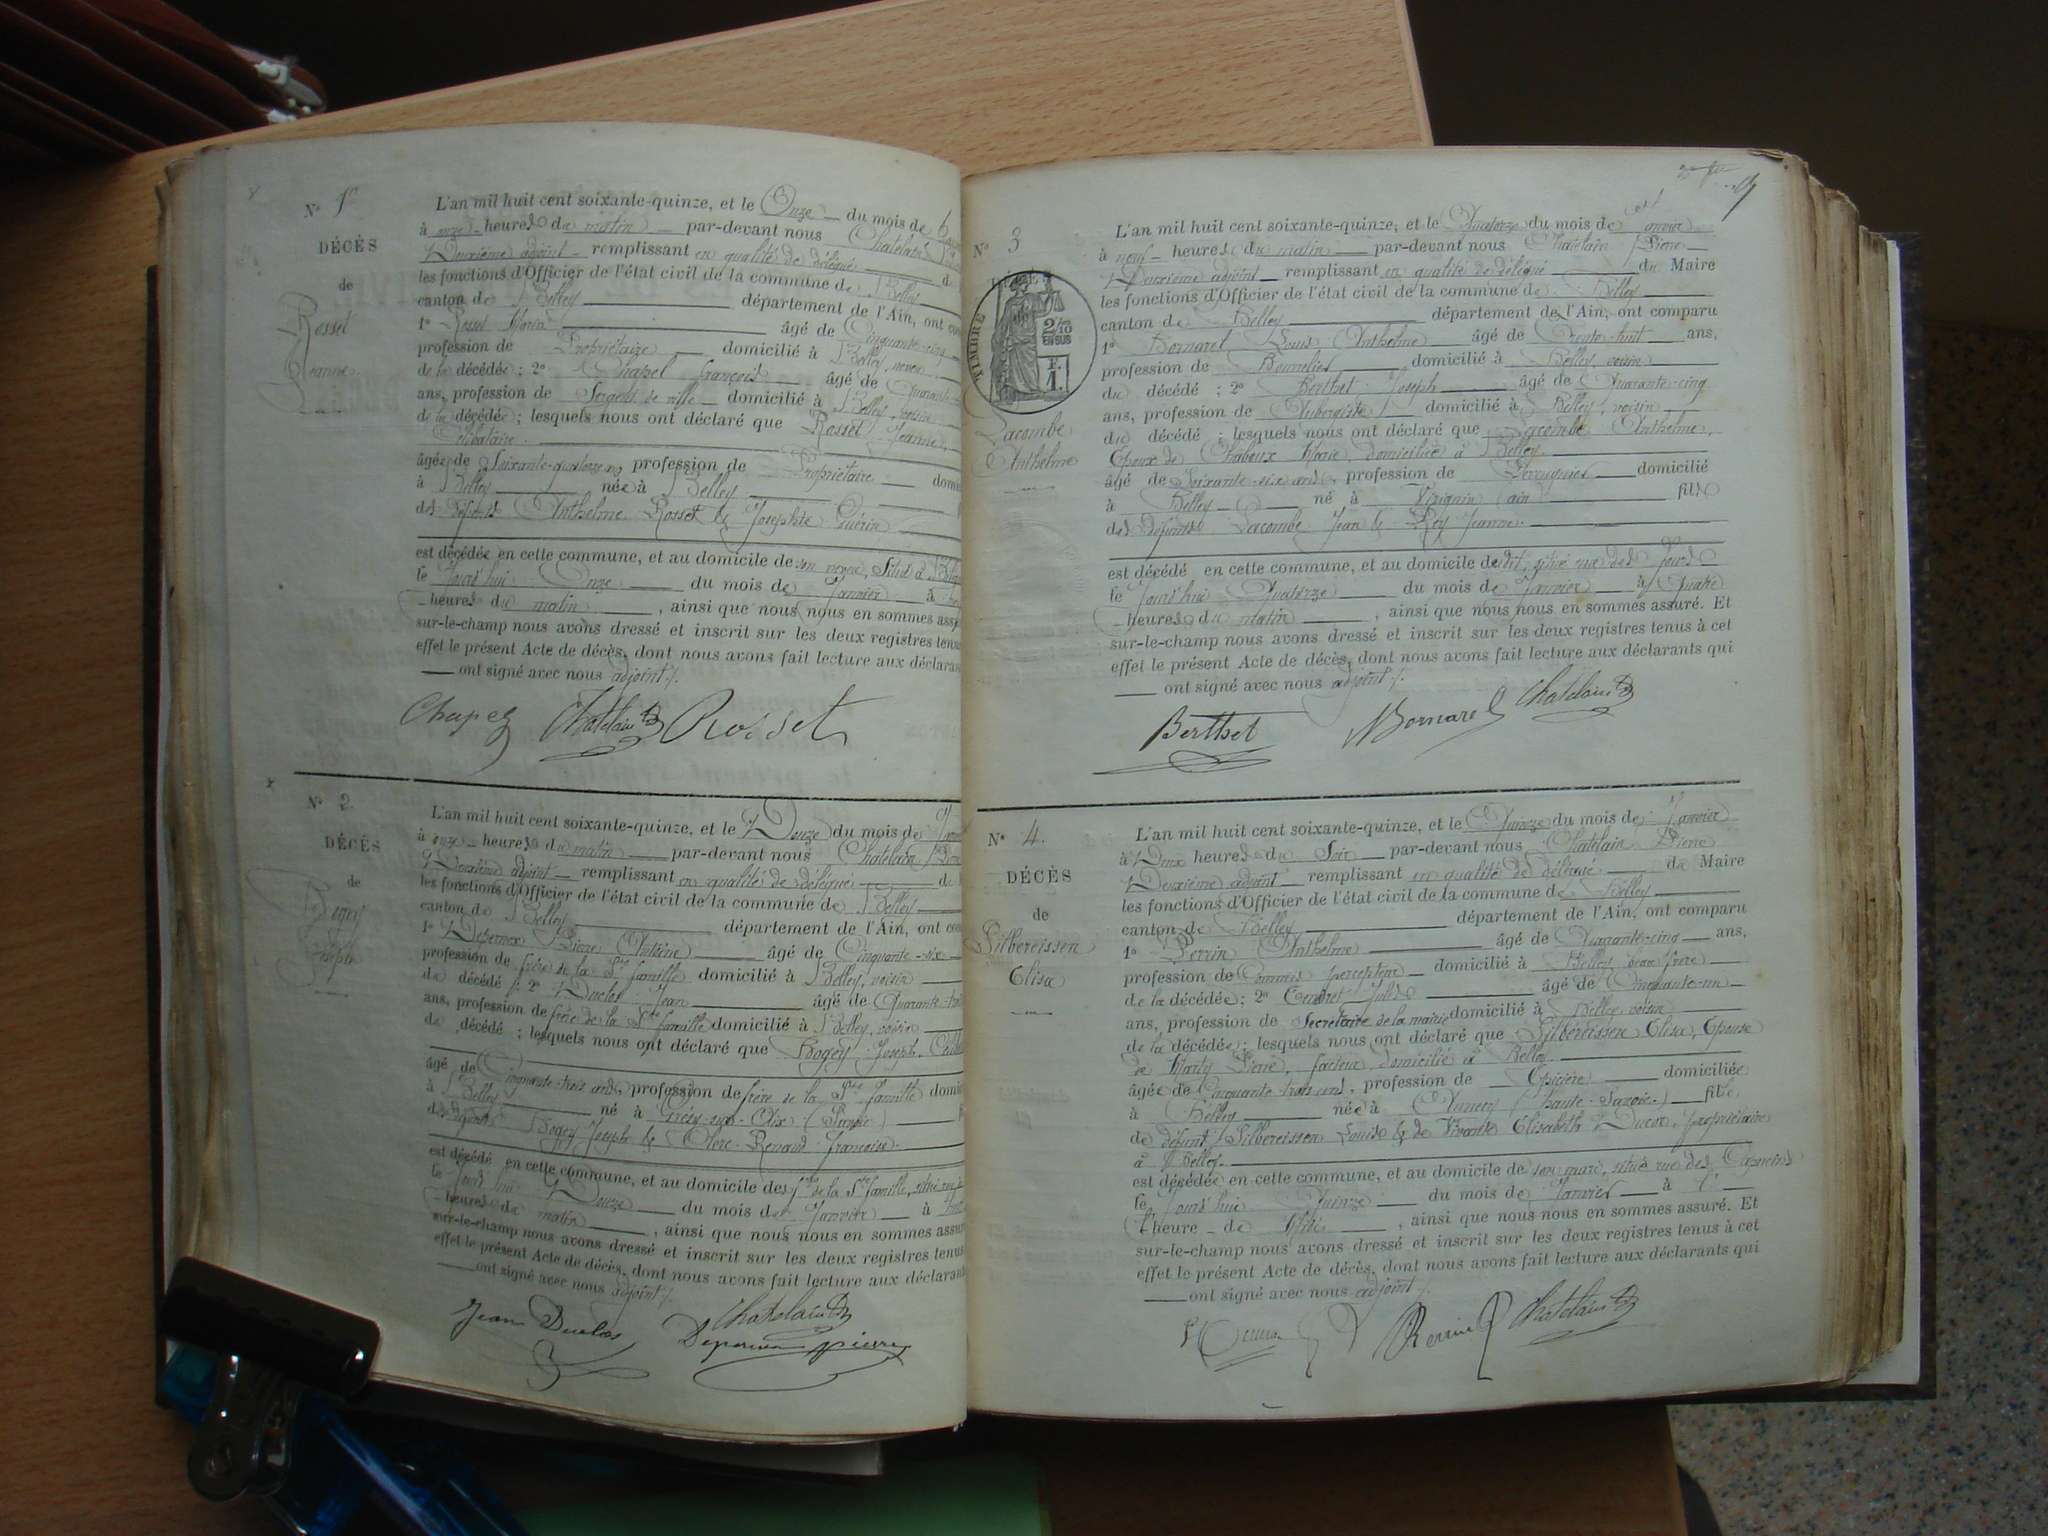 N° 1er
DÉCÈS
de
Rosset
Jeanne
L'an mil huit cent soixante-quinze, et le Onze du mois de
à onze heures du matin par-devant nous Chatelain
Deuxième adjoint remplissant en qualité de délégué
les fonctions d'Officier de l'état civil de la commune de Belley
canton de Belley département de l'Ain, ont
1° Rosset Marin âgé de Cinquante-cinq
profession de Propriétaire domicilié à Belley, neveu
de la décédée ; 2° Chapel françois âgé de Quarante
ans, profession de Sergent de ville domicilié à Belley, voisin
de la décédée ; lesquels nous ont déclaré que Rosset Jeanne,
Célibataire.
âgée de Soixante-quatorze ans profession de Propriétaire
à Belley née à Belley
des défunts Anthelme Rosset & Josephte Guérin
est décédée en cette commune, et au domicile de son neveu, Situé à
le Jourd'hui Onze du mois de Janvier à
heures du matin , ainsi que nous nous en sommes
sur-le-champ nous avons dressé et inscrit sur les deux registres tenus
effet le présent Acte de décès, dont nous avons fait lecture aux
ont signé avec nous adjoint /.
Chapel Chatelain Rosset
N° 2
DÉCÈS
de
Bogey
Joseph
L'an mil huit cent soixante-quinze, et le Douze du mois de
à onze heures du matin par-devant nous Chatelain
Deuxième adjoint remplissant en qualité de délégué
les fonctions d'Officier de l'état civil de la commune de Belley
canton de Belley département de l'Ain, ont
1° Depernex Pierre Antoine âgé de Cinquante-six
profession de frère de la Ste famille domicilié à Belley, voisin
du décédé ; 2° Duclos Jean âgé de Quarante
ans, profession de frère de la Ste famille domicilié à Belley, voisin
du décédé ; lesquels nous ont déclaré que Bogey Joseph,
âgé de Cinquante-trois ans, profession de frère de la Ste famille
à Belley né à Grésy-sur-Aix (Savoie)
des défunts Bogey Joseph & Clerc-Renaud Françoise.
est décédé en cette commune, et au domicile des frères de la Ste famille, situé
le Jourd'hui Douze du mois de Janvier à
heures du matin , ainsi que nous nous en sommes
sur-le-champ nous avons dressé et inscrit sur les deux registres tenus
effet le présent Acte de décès, dont nous avons fait lecture aux
ont signé avec nous adjoint /.
Jean Duclos Chatelain
Depernex pierre
N° 3
TIMBRE
2/10
EN SUS
F.
1.
Lacombe
Anthelme
L'an mil huit cent soixante-quinze, et le Quatorze du mois de Janvier
à neuf heures du matin par-devant nous Chatelain Pierre
Deuxième adjoint remplissant en qualité de délégué du Maire
les fonctions d'Officier de l'état civil de la commune de Belley
canton de Belley département de l'Ain, ont comparu
1° Bornarel Louis Anthelme âgé de Trente-huit ans,
profession de Bourrelier domicilié à Belley, voisin
du décédé ; 2° Berthet Joseph âgé de Quarante-cinq
ans, profession de Aubergiste domicilié à Belley, voisin
du décédé ; lesquels nous ont déclaré que Lacombe Anthelme,
Epoux de Chaboux Marie, domiciliée à Belley.
âgé de Soixante-six ans, profession de Perruquier domicilié
à Belley né à Virignin (ain) fils
des défunts Lacombe Jean & Rey Jeanne.
est décédé en cette commune, et au domicile dudit, situé rue des
le Jourd'hui Quatorze du mois de Janvier à Quatre
heures du matin , ainsi que nous nous en sommes assuré. Et
sur-le-champ nous avons dressé et inscrit sur les deux registres tenus à cet
effet le présent Acte de décès, dont nous avons fait lecture aux déclarants qui
ont signé avec nous adjoint /.
Berthet Bornarel Chatelain
N° 4.
DÉCÈS
de
Silbereissen
Elisa
L'an mil huit cent soixante-quinze, et le Quinze du mois de Janvier
à Deux heures du Soir par-devant nous Chatelain Pierre
Deuxième adjoint remplissant en qualité de délégué du Maire
les fonctions d'Officier de l'état civil de la commune de Belley
canton de Belley département de l'Ain, ont comparu
1° Perrin Anthelme âgé de Quarante-cinq ans,
profession de Commis perception domicilié à Belley, beau frère
de la décédée ; 2° Jules âgé de Cinquante-un
ans, profession de Secretaire de la mairie domicilié à Belley voisin
de la décédée ; lesquels nous ont déclaré que Silbereissen Elisa, Epouse
de Marty Pierre, facteur, domicilié à Belley.
âgée de Cinquante-trois ans, profession de Epicière domiciliée
à Belley née à Annecy (haute-Savoie) fille
de défunt Silbereissen Louis & de vivante Elisabeth Ducor, propriétaire
à Belley.
est décédée en cette commune, et au domicile de son mari, situé rue des Capucins
le Jourd'hui Quinze du mois de Janvier à
l'heure de Midi , ainsi que nous nous en sommes assuré. Et
sur-le-champ nous avons dressé et inscrit sur les deux registres tenus à cet
effet le présent Acte de décès, dont nous avons fait lecture aux déclarants qui
ont signé avec nous adjoint /.
Perrin Chatelain